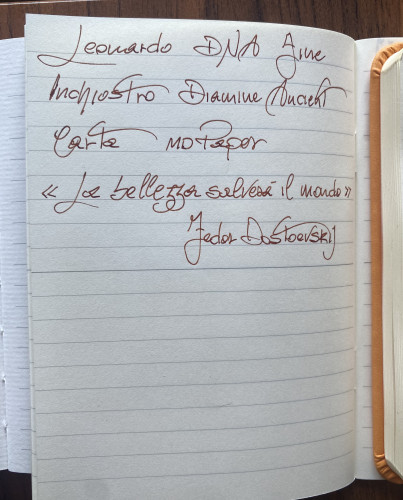 Leonardo DNA Fine
Inchiostro Diamine Ancient
Carta MD Paper
« La bellezza salverà il mondo »
Fedor Dostoevskij